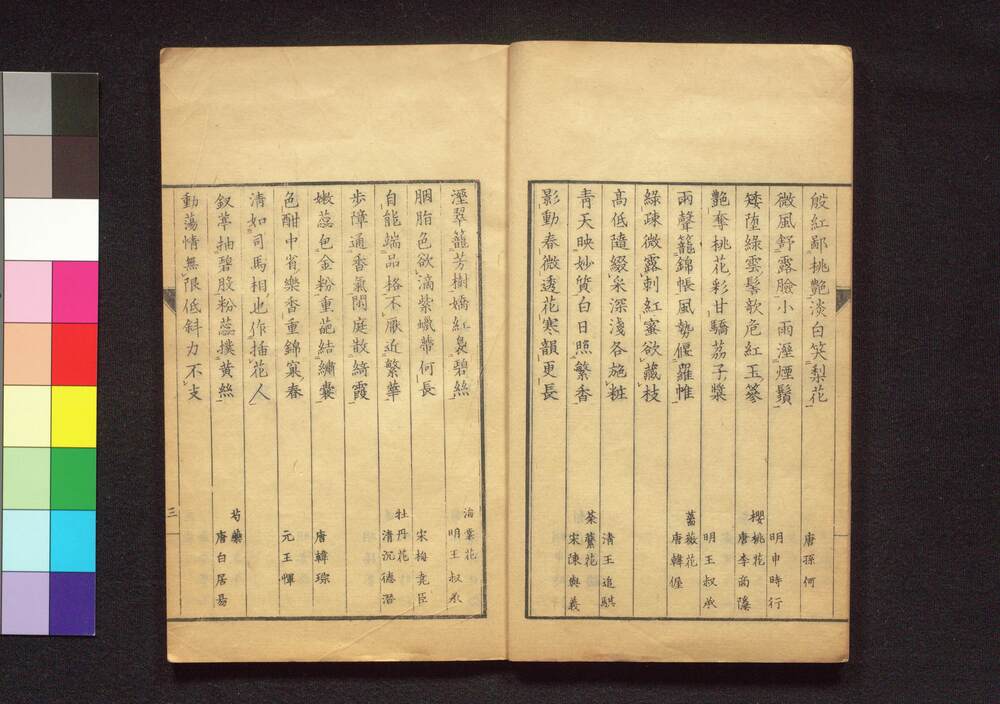 殷紅鄙桃艷淡白笑梨花
唐孫何
微風舒露臉小雨溼煙鬟
明申時行
矮墮綠雲髻欹危紅玉簪
櫻桃花
唐李商隱
艷奪桃花彩甘驕荔子漿
明王叔承
雨聲籠錦帳風勢偃羅帷
薔薇花
唐韓偓
綠疎微露刺紅蜜欲藏枝
高低隨綴采深淺各施粧
清王追騏
青天映妙質白日照繁香
荼䕷花
宋陳與義
影動春微透花寒韻更長
溼翠籠芳樹嬌紅裊碧絲
海棠花
明王叔承
胭脂色欲滴紫蠟蒂何長
宋梅堯臣
自能端品格不厭近繁華
牡丹花
清沉德潛
步障通香氣閑庭散綺霞
嫩蕊包金粉重葩結繡囊
唐韓琮
色酣中省樂香重錦窠春
元王惲
清如司馬相也作插花人
釵葶抽碧股粉蕊撲黃絲
芍藥
唐白居易
動蕩情無限低斜力不支
三